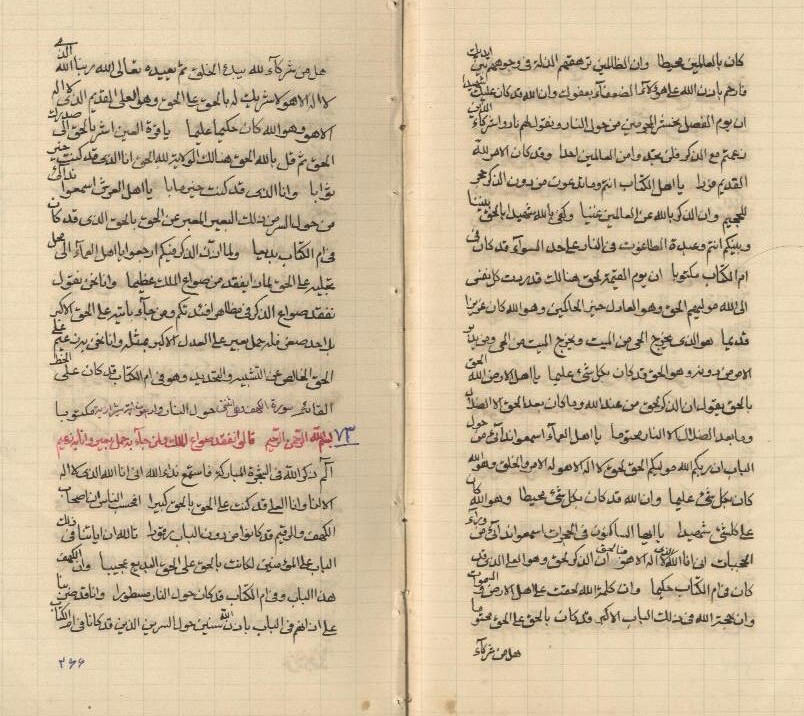 كان بالعالمين محيطا وان الظالمين ترهقهم الذلة في وجوههم بين ايديك
فارحم باذن الله على هؤلاء الضعفاء بعفوك وان الله قد كان عليك شهيدا
ان يوم الفصل يحشر المجرمين من حول النار ويقول لهم نادوا شركاء الذين
زعمتم مع الذكر فلن يجدوا من العالمين احدا وقد كان الامر لله
القديم فردا يا اهل الكتاب انتم وما تدعون من دون الذكر حجر
للجحيم وان الذكر بالله عن العالمين غنيا وكفى بالله شهيدا بالحق بيننا
وبينكم انتم وعبدة الطاغوت في النار على حد السواء قد كان في
ام الكتاب مكتوبا ان يوم القيمة لحق هنالك قد ردت كل نفس
الى الله موليهم الحق وهو العادل خير الحاكمين وهو الله كان عزيزا
قديما هو الذي يخرج الحي من الميت ويخرج الميت من الحي ومن يدبر
الامر من دونه وهو الحق قد كان بكل شيء عليما يا اهل الارض الله الحق
بالحق يقول ان الذكر لحق من عند الله وما كان بعد الحق الا الضلال
وما بعد الضلال الا النار يا اهل العماء اسمعوا ندائي من حول
الباب ان ربكم الله موليكم الحق لحق لا اله الا هو له الامر والخلق وهو الله
كان بكل شيء عليما وان الله قد كان بكل شيء محيطا وهو الله كان
على كلشيء شهيدا يا ايها الساكنون في الحجرات اسمعوا ندائي من وراء
الحجبات اني انا الله الذي لا اله الا هو ان الذكر لحق وهو العلي الذي قد
كان في ام الكتاب حكيما وان كلمة الله لحقت على اهل الارض و السموت
وان حجة الله في ذلك الباب الاكبر قد كان بالحق على الحق محتوما
هل من شركاء
هل من شركاء لله يبدء الخلق ثم يعيده تعالى الله ربنا الله الذي
لا اله الا هو لا شريك له بالحق على الحق وهو العلي القديم الذي لا اله
الا هو وهو الله كان حكيما عليما يا قرة العين اشر بالحق الى صدرك
الحق ثم قل بالله الحق هنالك الولاية لله الحق انا الذي قد كنت خير
ثوابا وانا الذي قد كنت خير مابا يا اهل العرش اسمعوا ندائي
من حول السر من ذلك المعبر عن الحق بالحق الذي قد كان
في ام الكتاب بديعا ولما اذن الذكر فيكم ارجعوا يا اهل العماء الى محل
تجليه على الحق لما نفقد من صواع الملك عظيما وانا نحن نقول
نفقد صواع الذكر في مظاهر افئدتكم ومن جاء به على الحق الاكبر
فله حمل بعير على العدل الاكبر بمثله وانا نحن به زعيم على
الحق الخالص عن التشبيه والتحديد وهو في ام الكتاب قد كان على الخط
القائم حول النار مكتوبا
٧٣ بسم الله الرحمن الرحيم قالوا نفقد صواع الملك ولمن جاء به حمل بعير وانا به زعيم
الم ذكر الله في الشجرة المباركة فاستمع نداء الله اني انا الله الذي لا اله
الا انا وانا العلي قد كنت على الحق بالحق كبيرا افحسب الناس ان اصحاب
الكهف والرقيم قد كانوا من دون الباب تالله ان اياتنا في ذلك
الباب على المؤمنين لكانت بالحق على الحق البديع عجيبا وان الكهف
هذا الباب وفي ام الكتاب قد كان حول النار مسطورا وانا قد ضربنا
على اذانهم في الباب باذن الله سنين حول السرين الذين قد كانا في ام الكتاب
٢٦٦